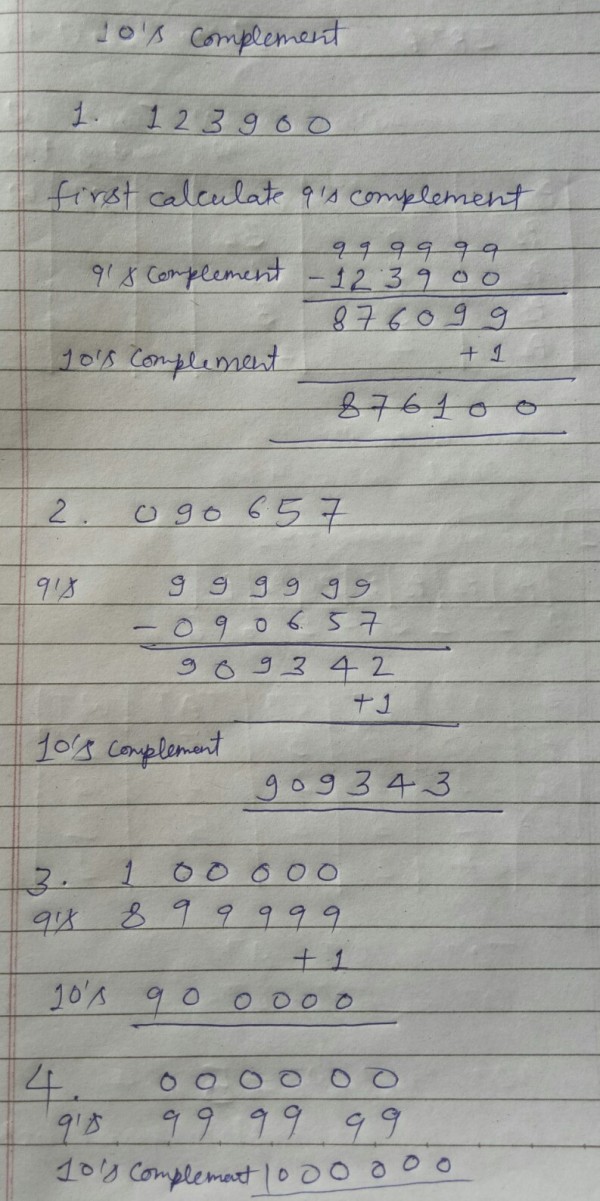 10's complement
1. 123900
first calculate 9's complement
999999
9's complement -123900
876099
10's complement +1
876100
2. 090657
9's 999999
-090657
909342
+1
10's complement
909343
3. 100000
9's 899999
+1
10's 900000
4. 000000
9's 999999
10's complement 1000000